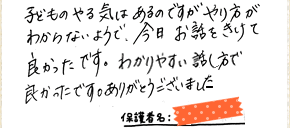 子どものやる気はあるのですがやり方が
わからないようで、今日お話をきけて
良かったです。わかりやすい話し方で
良かったです。ありがとうございました
保護者名: